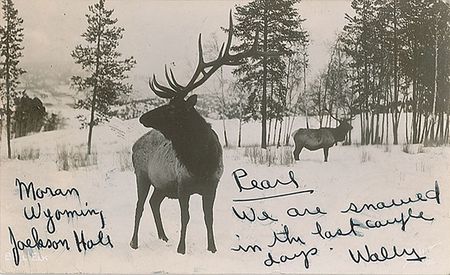 Moran
Wyoming
Jackson Hole
Pearl
We are snowed
in the last couple
days. Wally